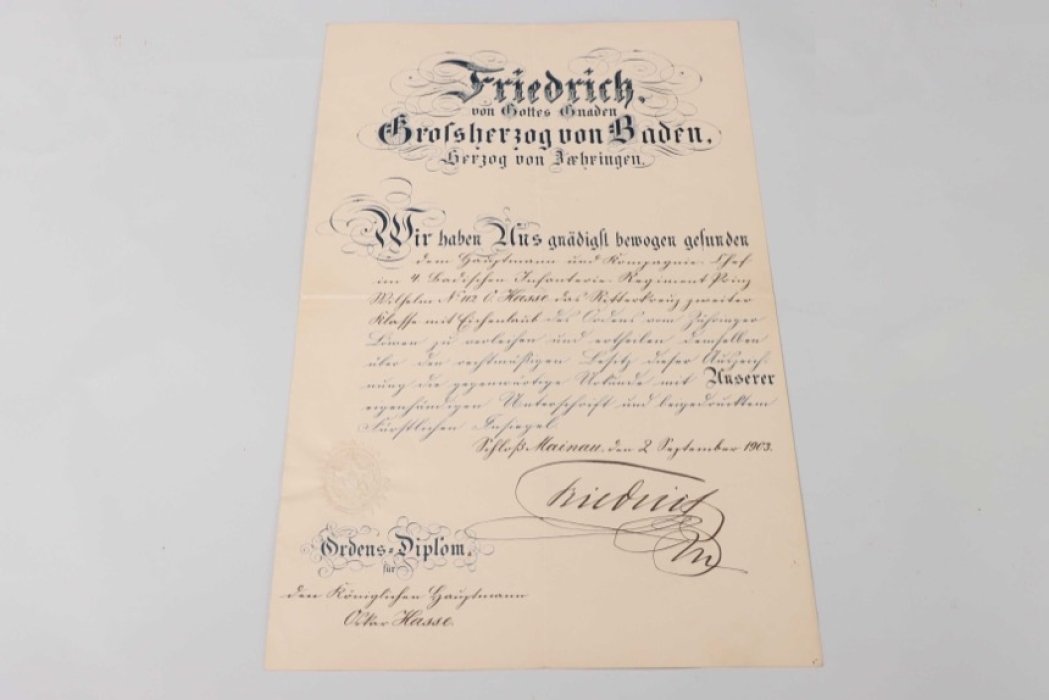 Friedrich,
von Gottes Gnaden
Großherzog von Baden,
Herzog von Zæhringen,
Wir haben Uns gnädigst bewogen gefunden
dem Hauptmann und Kompagnie-Chef
im 4. Badischen Infanterie-Regiment Prinz
Wilhelm No 112 O. Hasse das Ritterkreuz zweiter
Klasse mit Eichenlaub des Ordens vom Zähringer
Löwen zu verleihen und ertheilen demselben
über den rechtmäßigen Besitz dieser Auszeich-
nung die gegenwärtige Urkunde mit Unserer
eigenhändigen Unterschrift und beigedrucktem
Fürstlichen Insiegel.
Schloß Mainau, den 2 September 1903.
Friedrich
Ordens-Diplom,
für
den Königlichen Hauptmann
Oskar Hasse.